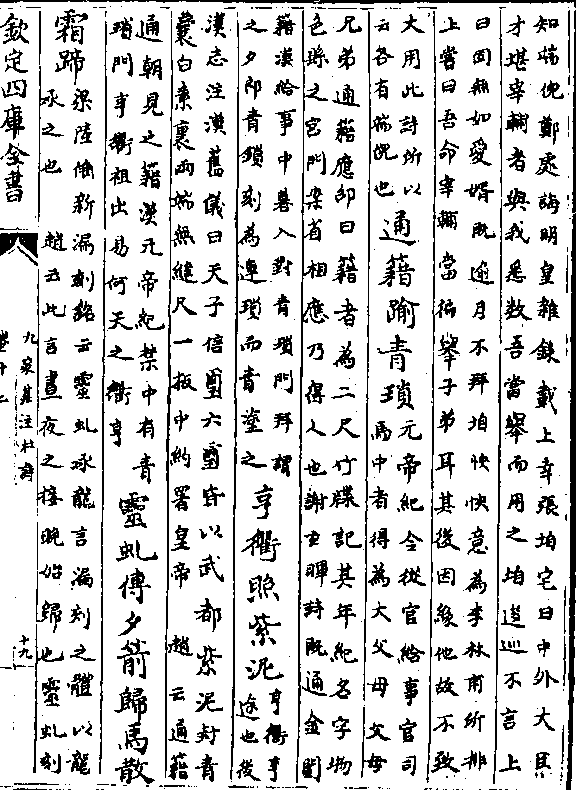 知端倪鄭處誨明皇雜錄載上幸張垍宅曰中外大臣
才堪宰輔者與我悉數吾當舉而用之垍逡巡不言上
曰固無如愛婿既逾月不拜垍怏怏意為李林甫所排
上嘗曰吾命宰輔當徧舉子弟耳其後因緣他故不致
大用此詩所以
云各有端倪也
通籍踰青瑣
元帝紀令從官給事官司
馬中者得為大父母父母
兄弟通籍應劭曰籍者為二尺竹牒記其年紀名字物
色縣之宮門案省相應乃得入也謝玄暉詩既通金閨
籍漢給事中暮入對青瑣門拜謂
之夕郎青鎖刻為連瑣而青塗之
亨衢照紫泥
亨衢亨
途也後
漢志注漢舊儀曰天子信璽六璽皆以武都紫泥封青
囊白素裏兩端無縫尺一板中約署皇帝 趙云通籍
通朝見之籍漢元帝紀禁中有青
瑣門亨衢祖出易何天之衢亨
靈虬傳夕箭歸馬散
霜蹄
梁陸倕新漏刻銘云靈虬承龍言漏刻之體以龍
承之也 趙云此言晝夜之接晚始歸也靈虬刻
欽定四庫全書
九家集注杜詩
十九